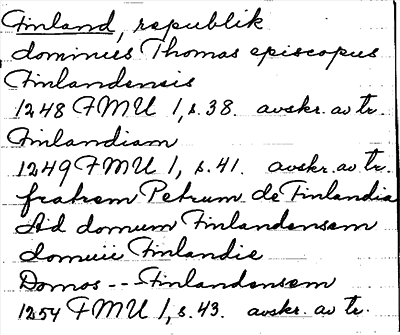 Finland, republik
dominus Thomas episcopus
Finlandensis
1248 FMU 1, s. 38. avskr. av tr.
Finlandiam
1249 FMU 1, s. 41. avskr. av tr.
fratrem Petrum de Finlandia
Ad domum Finlandensem
domui Finlandie
Domos -- Finlandensem
1254 FMU 1, s. 43. avskr. av tr.